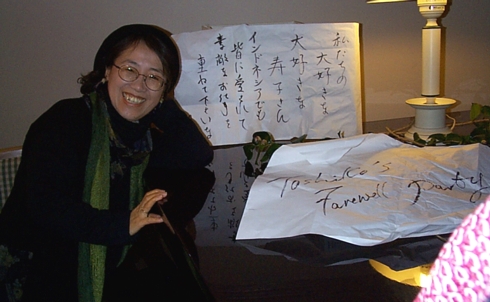 私たちの
大好きな
大好きな
寿子さん
インドネシアでも
皆に愛されて
素敵な
重ねて下さい
Toshiko's
Farewell Party